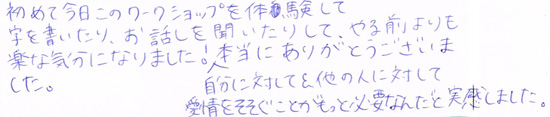 初めて今日このワークショップを体験して
字を書いたり、お話しを聞いたりして、やる前よりも
楽な気分になりました！本当にありがとうございま
した。
自分に対しても他の人に対して
愛情をそそぐことがもっと必要なんだと実感しました。